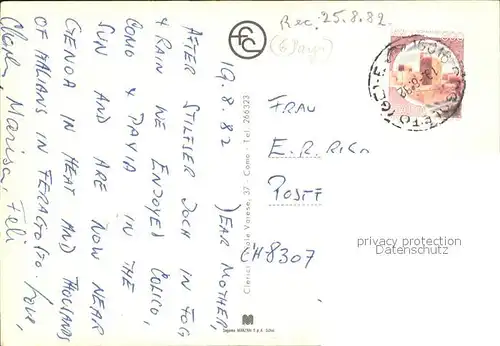 19.8.82
DEAR MOTHER,
AFTER STILFSER JOCH IN FOG
& RAIN WE ENJOYED COLICO,
COMO & PAVIA IN THE
SUN AND ARE NOW NEAR
GENOA IN HEAT AND THOUSANDS
OF ITALIANS IN FERAGTOSTO. Love,
Marisa, Feli
Rec. 25.8.82.
(6 Days)
FRAU
E. R.
POSTF
CH 8307
Clerici Viale Varese, 37 - Como - Tel. 266323
16016
(GE)
privacy protection
Datenschutz